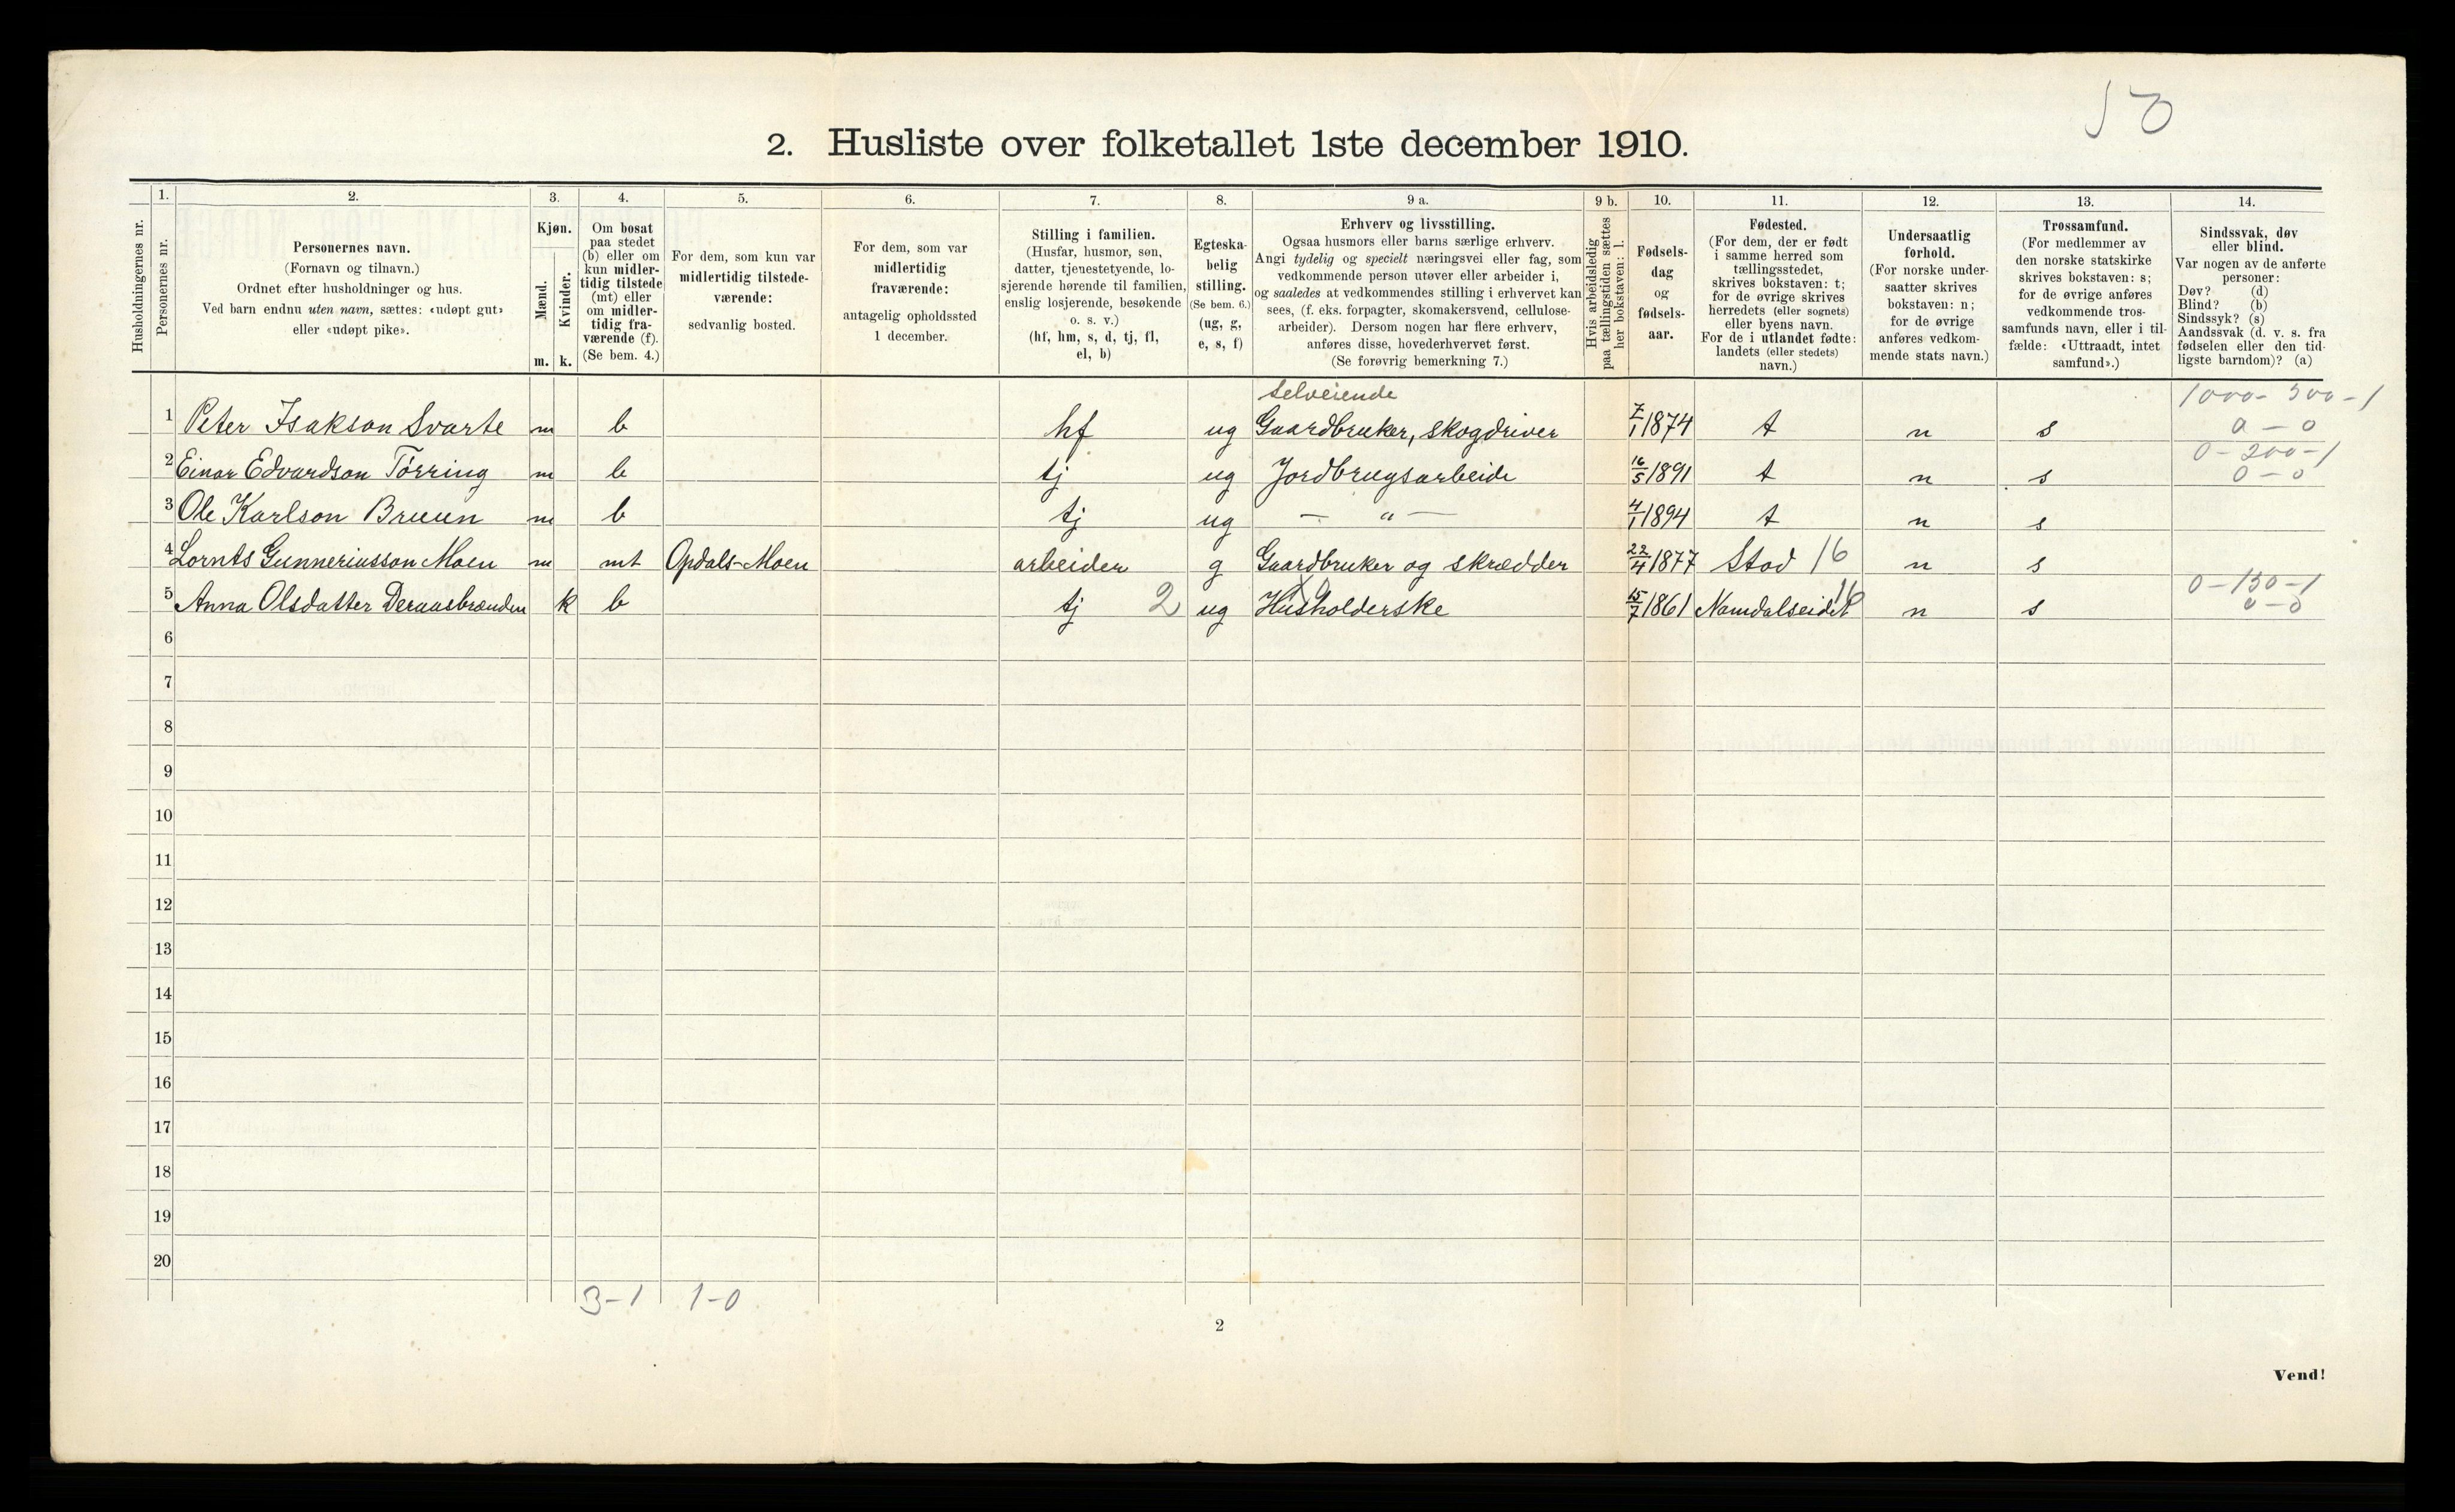 50
2. Husliste over folketallet 1ste december 1910.
Husholdningernes nr.
1.
Personernes nr.
2.
Personernes navn.
(Fornavn og tilnavn.)
Ordnet efter husholdninger og hus.
Ved barn endnu uten navn, sættes: «udøpt gut»
eller «udøpt pike».
3.
Kjøn.
Mænd.
Kvinder.
m. k.
4.
Om bosat
paa stedet
(b) eller om
kun midler-
tidig tilstede
(mt) eller
om midler-
tidig fra-
værende (f).
(Se bem. 4.)
5.
For dem, som kun var
midlertidig tilstede-
værende:
sedvanlig bosted.
6.
For dem, som var
midlertidig
fraværende:
antagelig opholdssted
1 december.
7.
Stilling i familien.
(Husfar, husmor, søn,
datter, tjenestetyende, lo-
sjerende hørende til familien,
enslig losjerende, besøkende
o. s. v.)
(hf, hm, s, d, tj, fl,
el, b)
8.
Egteska-
belig
stilling.
(Se bem. 6.)
(ug, g,
e, s, f)
9 a.
Erhverv og livsstilling.
Ogsaa husmors eller barns særlige erhverv.
Angi tydelig og specielt næringsvei eller fag, som
vedkommende person utøver eller arbeider i,
og saaledes at vedkommendes stilling i erhvervet kan
sees, (f. eks. forpagter, skomakersvend, cellulose-
arbeider). Dersom nogen har flere erhverv,
anføres disse, hovederhvervet først.
(Se forøvrig bemerkning 7.)
9 b.
Hvis arbeidsledig
paa tællingstiden sættes
her bokstaven: l.
10.
Fødsels-
dag
og
fødsels-
aar.
11.
Fødested.
(For dem, der er født
i samme herred som
tællingsstedet,
skrives bokstaven: t;
for de øvrige skrives
herredets (eller sognets)
eller byens navn.
For de i utlandet fødte:
landets (eller stedets)
navn.)
12.
Undersaatlig
forhold.
(For norske under-
saatter skrives
bokstaven: n;
for de øvrige
anføres vedkom-
mende stats navn.)
13.
Trossamfund.
(For medlemmer av
den norske statskirke
skrives bokstaven: s;
for de øvrige anføres
vedkommende tros-
samfunds navn, eller i til-
fælde: «Uttraadt, intet
samfund».)
14.
Sindssvak, døv
eller blind.
Var nogen av de anførte
personer:
Døv? (d)
Blind? (b)
Sindssyk? (s)
Aandssvak (d. v. s. fra
fødselen eller den tid-
ligste barndom)? (a)
selveiende 1000-500-1
1 Peter Isakson Svarte m b hf ug Gaardbruker, skogdriver 7/1 1874 t n s 0-0
0-200-1
2 Einar Edvardson Tørring m b tj ug Jordbrugsarbeide 16/5 1891 t n s 0-0
3 Ole Karlson Bruun m b tj ug — " — 4/1 1894 t n s
4 Lornts Gunneriusson Moen m mt Opdals-Moen arbeider g Gaardbruker og skrædder 22/4 1877 Stod 16 n s
0-150-1
5 Anna Olsdatter Deraasbrænden k b tj 2 ug Husholderske 15/7 1861 Namdalseidet 16 n s 0-0
6
7
8
9
10
11
12
13
14
15
16
17
18
19
20
3-1 1-0
2
Vend!